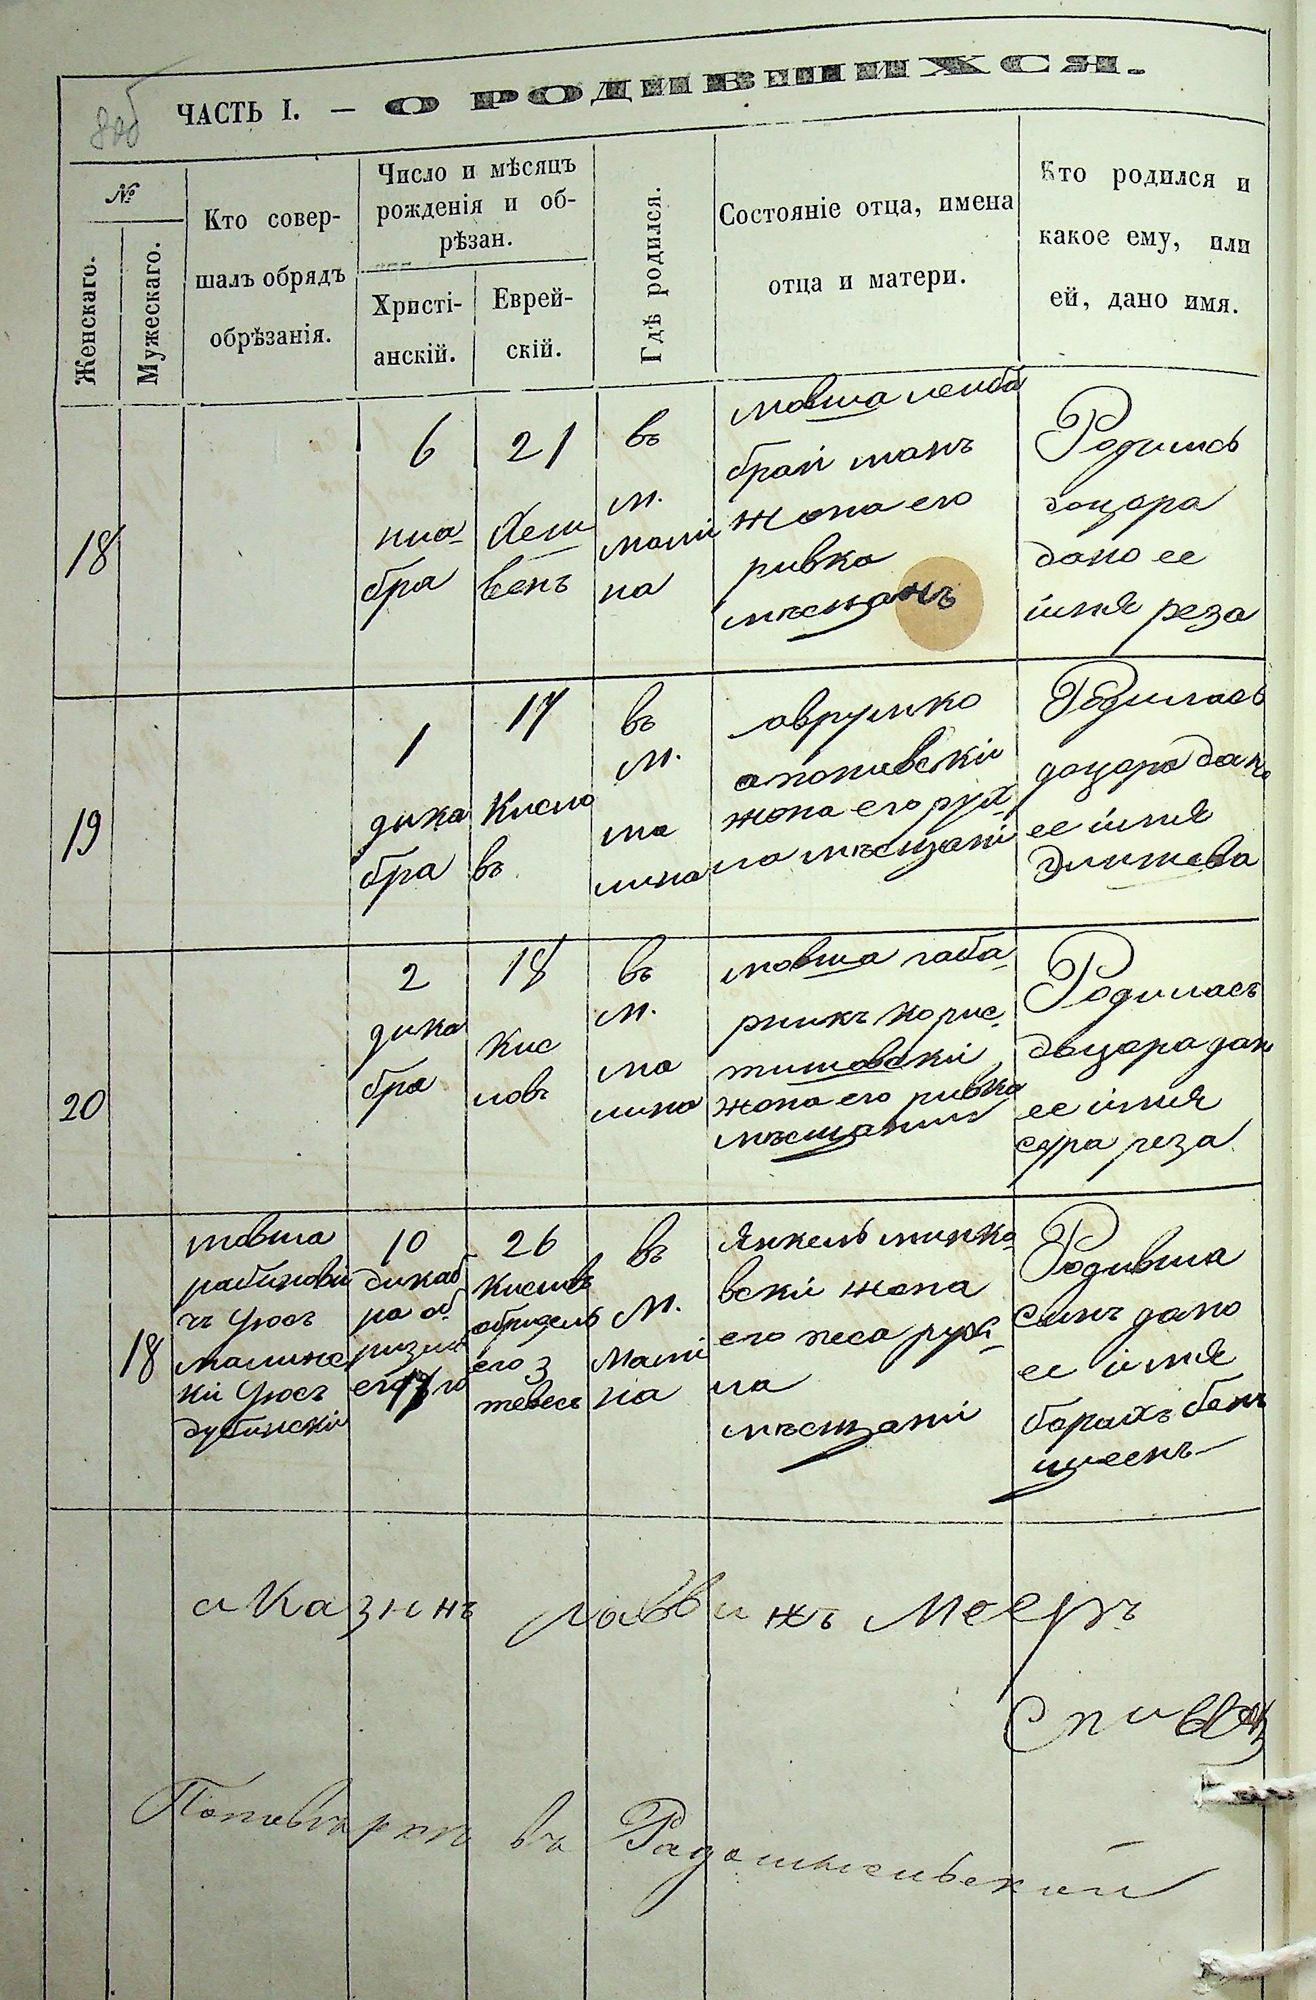 8об
ЧАСТЬ I. — О РОДИВШИХСЯ.
№
Женскаго.
Мужескаго.
Кто совер-
шалъ обрядъ
обрѣзанія.
Число и мѣсяцъ
рожденія и об-
рѣзан.
Христі-
анскій.
Еврей-
скій.
Гдѣ родился.
Состояніе отца, имена
отца и матери.
Кто родился и
какое ему, или
ей, дано имя.
18
6
ноа-
бра
21
Хеш
венъ
въ
м.
мали
на
мовша лейба
брай манъ
жона его
ривка
мѣщанъ
Родилсь
доцера
дано ее
имя реза
19
1
дика
бра
17
Кисло
въ
въ
м.
ма
лина
аврумко
жона его рух
ла мѣщані
Родилась
доцера дано
ее имя
20
2
дика
бра
18
Кис
ловъ
въ
м.
ма
лина
мовша габа-
рникъ корис-
тишовскій
жона его ривка
мѣщаним
Родилась
доцера дан
ее имя
сура реза
18
мовша
рабинови
чъ Уюсъ
малинс
кій Уюсъ
дубинскій
10
дикаб
ра об
ризан
его 17 го
26
Кисловъ
его 3
тевесъ
въ
м.
мали
на
Янкель минко
вскій жона
его песа рух
ла
мѣщані
Родивша
синъ дано
ее имя
борахъ бенъ
цыенъ
Казинъ раввинъ Меерь
Спивак
въ Радомысльскій